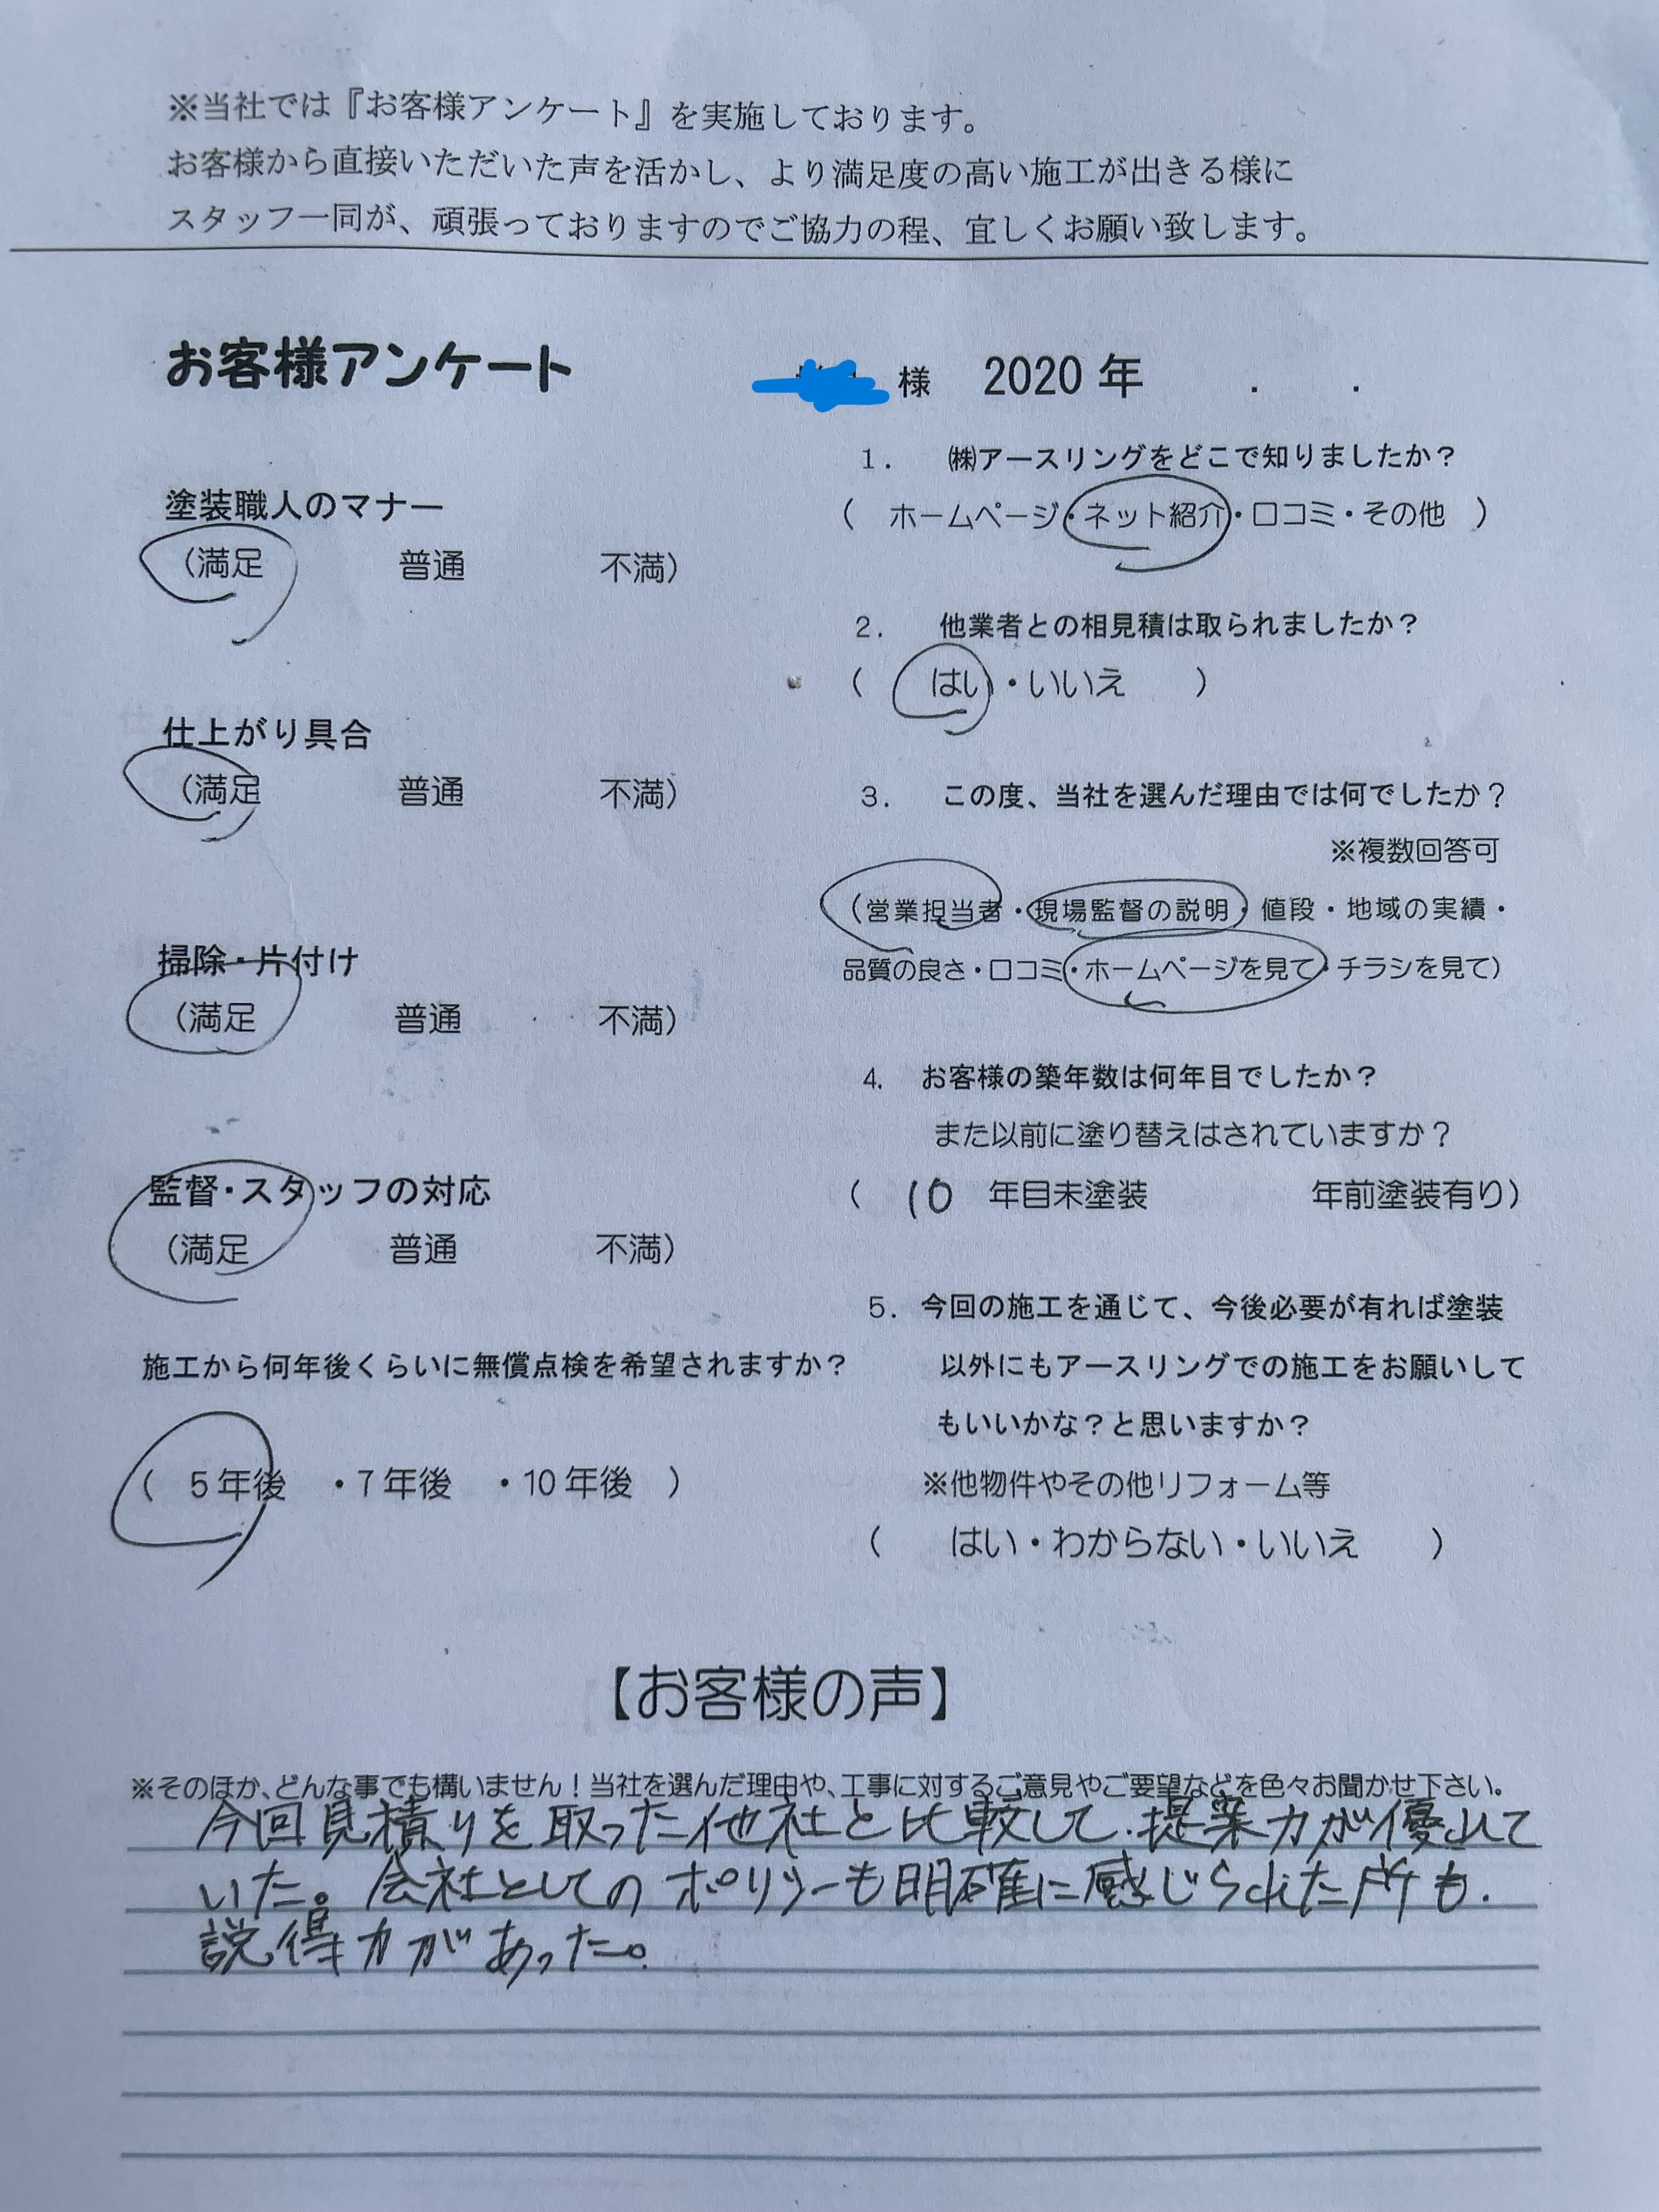 ※当社では『お客様アンケート』を実施しております。
お客様から直接いただいた声を活かし、より満足度の高い施工が出きる様に
スタッフ一同が、頑張っておりますのでご協力の程、宜しくお願い致します。
お客様アンケート
様 2020 年 . .
塗装職人のマナー
(満足 普通 不満)
仕上がり具合
(満足 普通 不満)
掃除・片付け
(満足 普通 不満)
監督・スタッフの対応
(満足 普通 不満)
施工から何年後くらいに無償点検を希望されますか？
( 5年後 ・7年後 ・10年後 )
1. ㈱アースリングをどこで知りましたか？
( ホームページ・ネット紹介・口コミ・その他 )
2. 他業者との相見積は取られましたか？
( はい・いいえ )
3. この度、当社を選んだ理由では何でしたか？
※複数回答可
(営業担当者・現場監督の説明・値段・地域の実績・
品質の良さ・口コミ・ホームページを見て・チラシを見て)
4. お客様の築年数は何年目でしたか？
また以前に塗り替えはされていますか？
( 10 年目未塗装 年前塗装有り)
5. 今回の施工を通じて、今後必要が有れば塗装
以外にもアースリングでの施工をお願いして
もいいかな？と思いますか？
※他物件やその他リフォーム等
( はい・わからない・いいえ )
【お客様の声】
※そのほか、どんな事でも構いません！当社を選んだ理由や、工事に対するご意見やご要望などを色々お聞かせ下さい。
今回見積りを取った他社と比較して、提案力が優れて
いた。会社としてのポリシーも明確に感じられた所も、
説得力があった。